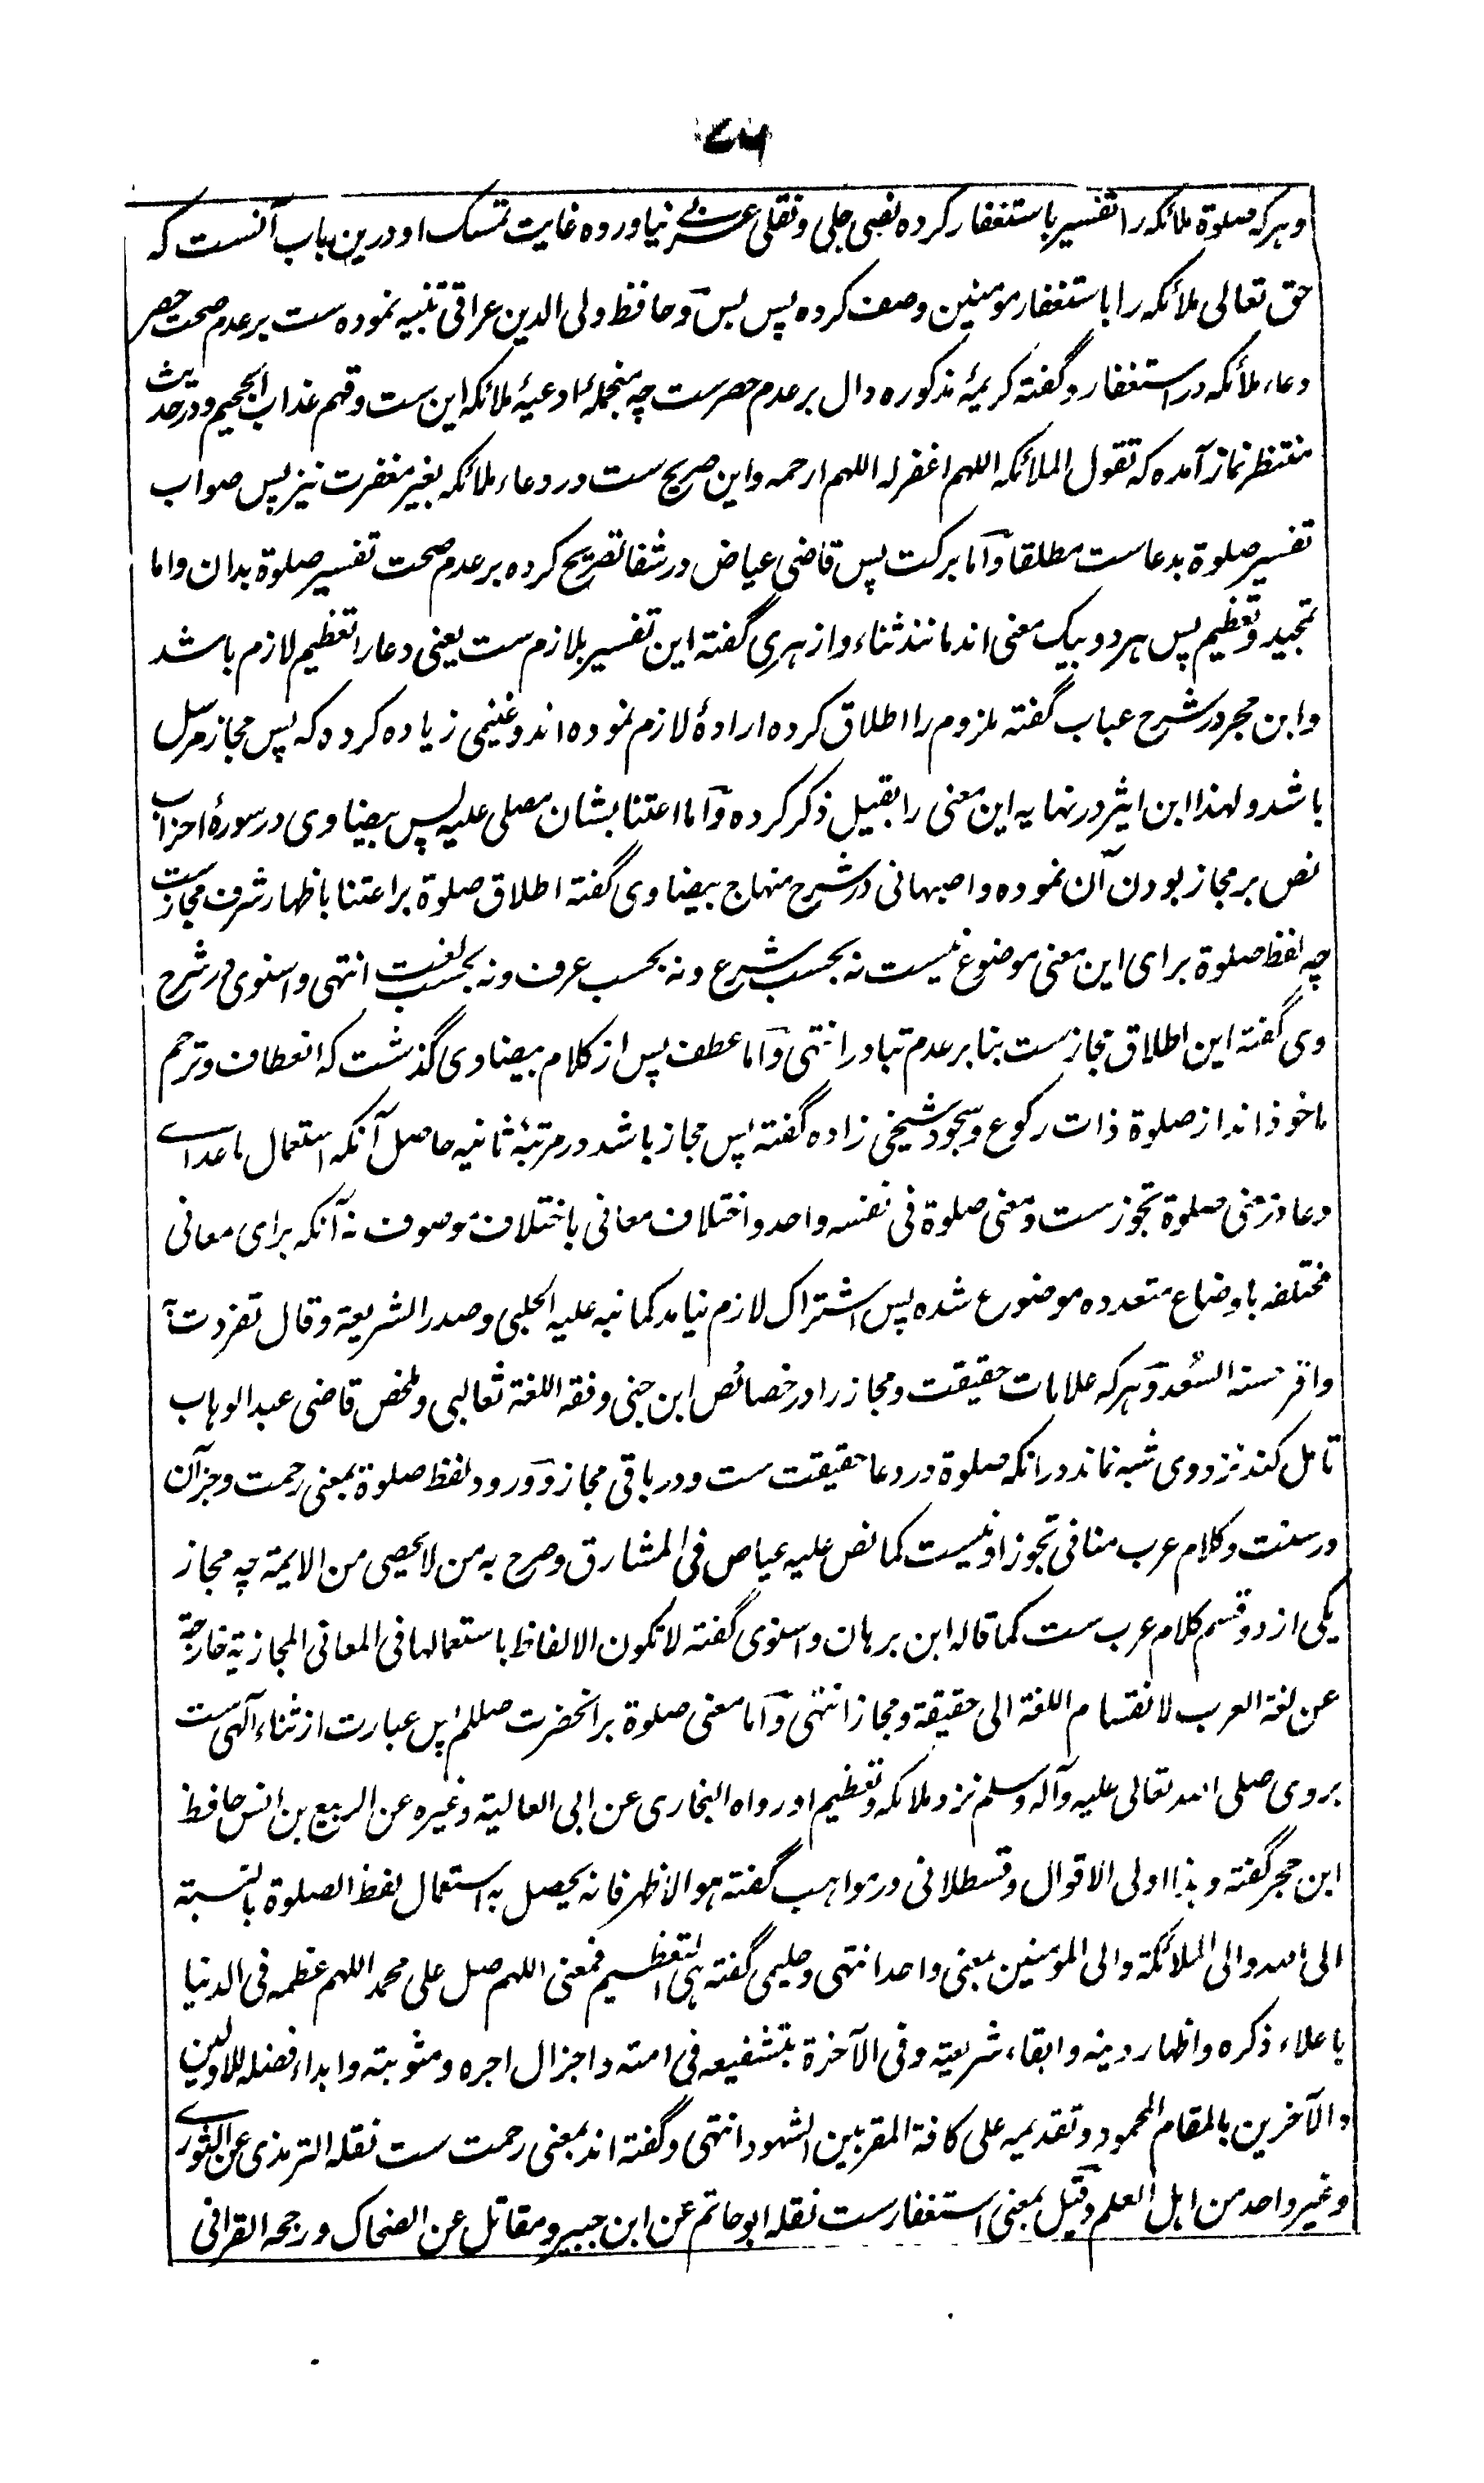 وہرکہ صلوۃ ملائکہ را تفسیر باستغفار کردہ نصی جلی ونقلی عربی نیاوردہ غایت تمسک او درین باب آنست کہ
حق تعالی ملائکہ را باستغفار مومنین وصف کردہ پس بس وحافظ ولی الدین عراقی تنبیہ نمودہ ست بر عدم صحت حصر
دعاء ملائکہ در استغفار وگفتہ کریمۂ مذکورہ دال بر عدم حصرست چہ منجملۂ ادعیۂ ملائکہ این ست وقہم عذاب الجحیم ودرحدیث
منتظر نماز آمدہ کہ تقول الملائکہ اللہم اغفرلہ اللہم ارحمہ واین صریح ست در دعاء ملائکہ بغیر مغفرت نیز پس صواب
تفسیر صلوۃ بدعاست مطلقا واما برکت پس قاضی عیاض در شفا تصریح کردہ بر عدم صحت تفسیر صلوۃ بدان واما
تمجید وتعظیم پس ہردو بیک معنی اند مانند ثناء وازہری گفتہ این تفسیر بلازم ست یعنی دعا را تعظیم لازم باشد
وابن حجر در شرح عباب گفتہ ملزوم را اطلاق کردہ ارادۂ لازم نمودہ اند وغنیمی زیادہ کردہ کہ پس مجاز مرسل
باشد ولہذا ابن اثیر در نہایہ این معنی را بقیل ذکر کردہ واما اعتنا بشان مصلی علیہ پس بیضاوی در سورۂ احزاب
نص بر مجاز بودن آن نمودہ واصبہانی در شرح منہاج بیضاوی گفتہ اطلاق صلوۃ بر اعتنا باظہار شرف مجازست
چہ لفظ صلوۃ برای این معنی موضوع نیست نہ بحسب شرع ونہ بحسب عرف ونہ بحسب لغت انتہی واسنوی در شرح
وی گفتہ این اطلاق مجازست بنا بر عدم تبادر انتہی واما عطف پس از کلام بیضاوی گذشت کہ انعطاف وترحم
ماخوذ اند از صلوۃ ذات رکوع وسجود شیخی زادہ گفتہ پس مجاز باشد در مرتبۂ ثانیہ حاصل آنکہ استعمال ماعداے
دعا در معنی صلوۃ تجوزست ومعنی صلوۃ فی نفسہ واحد واختلاف معانی باختلاف موصوف نہ آنکہ برای معانی
مختلفہ باوضاع متعددہ موضوع شدہ پس اشتراک لازم نیامد کما نبہ علیہ الحلبی وصدر الشریعۃ وقال تفردت بہ
واقر السعد وہرکہ علامات حقیقت ومجاز را در خصائص ابن جنی وفقہ اللغۃ ثعالبی وملخص قاضی عبد الوہاب
تامل کند نزد وی شبہ نماند در انکہ صلوۃ در دعا حقیقت ست ودر باقی مجاز وورود لفظ صلوۃ بمعنی رحمت وجز آن
در سنت وکلام عرب منافی تجوز او نیست کما نص علیہ عیاص فی المشارق وصرح بہ من لا یحصی من الایمۃ چہ مجاز
یکی از دو قسم کلام عرب ست کما قالہ ابن برہان واسنوی گفتہ لا تکون الالفاظ باستعمالہا فی المعانی المجازیۃ خارجۃ
عن لغۃ العرب لانقسام اللغۃ الی حقیقۃ ومجاز انتہی واما معنی صلوۃ بر انحضرت صللم پس عبارت از ثناء آلہی ست
بروی صلی اللہ تعالی علیہ وآلہ وسلم نزد ملائکہ وتعظیم او رواہ البخاری عن ابی العالیۃ وغیرہ عن الربیع بن انس حافظ
ابن حجر گفتہ وہذا اولی الاقوال وقسطلانی در مواہب گفتہ ہو الاظہر فانہ یحصل بہ استعمال لفظ الصلوۃ بالنسبۃ
الی اللہ والی الملائکۃ والی المومنین بمعنی واحد انتہی وحلیمی گفتہ ہی التعظیم فمعنی اللہم صل علی محمد اللہم عظمہ فی الدنیا
باعلاء ذکرہ واظہار دینہ وابقاء شریعتہ وفی الآخرۃ بتشفیعہ فی امتہ واجزال اجرہ ومثوبتہ وابداء فضلہ للاولین
والآخرین بالمقام المحمود وتقدیمہ علی کافۃ المقربین الشہود انتہی وگفتہ اند بمعنی رحمت ست نقلہ الترمذی عن الثورے
وغیر واحد من اہل العلم وقیل بمعنی استغفارست نقلہ ابو حاتم عن ابن جبیر ومقاتل عن الضحاک ورجحہ القرافی